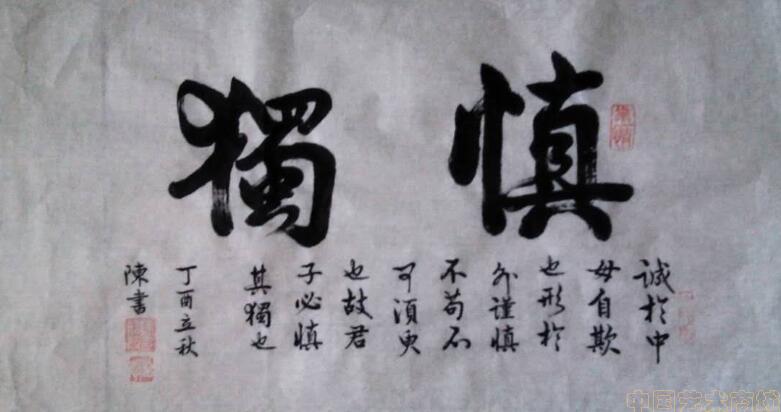 慎獨
誠於中
毋自欺
也形於
外謹慎
不苟不
可須臾
也故君
子必慎
其獨也
丁酉立秋
陳書
中国艺术